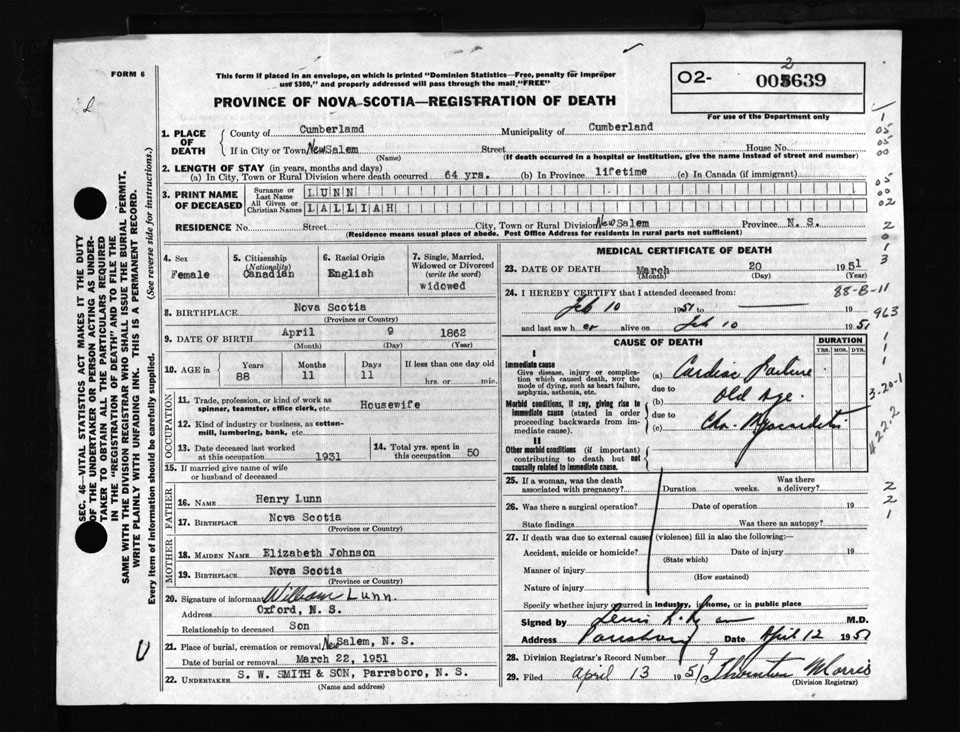 FORM 6
This form if placed in an envelope, on which is printed "Dominion Statistics—Free, penalty for improper
use $300," and properly addressed will pass through the mail "FREE"
PROVINCE OF NOVA SCOTIA—REGISTRATION OF DEATH
O2- 2
639
For use of the Department only
1. PLACE OF DEATH
County of Cumberlamd Municipality of Cumberland
If in City or Town New Salem Street House No.
(Name) (If death occurred in a hospital or institution, give the name instead of street and number)
2. LENGTH OF STAY (in years, months and days)
(a) In City, Town or Rural Division where death occurred 64 yrs. (b) In Province lifetime (c) In Canada (if immigrant)
3. PRINT NAME OF DECEASED
Surname or Last Name LUNN
All Given or Christian Names LALLIAH
RESIDENCE No. Street City, Town or Rural Division New Salem Province N. S.
(Residence means usual place of abode. Post Office Address for residents in rural parts not sufficient)
4. Sex
Female
5. Citizenship
(Nationality)
Canadian
6. Racial Origin
English
7. Single, Married,
Widowed or Divorced
(write the word)
widowed
8. BIRTHPLACE Nova Scotia
(Province or Country)
9. DATE OF BIRTH April 9 1862
(Month) (Day) (Year)
10. AGE in Years Months Days If less than one day old
88 11 11 hrs. or min.
OCCUPATION
11. Trade, profession, or kind of work as
spinner, teamster, office clerk, etc. Housewife
12. Kind of industry or business, as cotton-
mill, lumbering, bank, etc.
13. Date deceased last worked
at this occupation 1931
14. Total yrs. spent in
this occupation 50
15. If married give name of wife
or husband of deceased
FATHER
16. NAME Henry Lunn
17. BIRTHPLACE Nova Scotia
(Province or Country)
MOTHER
18. MAIDEN NAME Elizabeth Johnson
19. BIRTHPLACE Nova Scotia
(Province or Country)
20. Signature of informant William Lunn.
Address Oxford, N. S.
Relationship to deceased Son
21. Place of burial, cremation or removal New Salem, N. S.
Date of burial or removal March 22, 1951
22. UNDERTAKER S. W. SMITH & SON, Parrsboro, N. S.
(Name and address)
MEDICAL CERTIFICATE OF DEATH
23. DATE OF DEATH March 20 1951
(Month) (Day) (Year)
24. I HEREBY CERTIFY that I attended deceased from: 88-B-11
Feb 10 1951 to 19
and last saw her alive on Feb 10 1951
CAUSE OF DEATH
DURATION
YRS. MOS. DYS.
I
Immediate cause
Give disease, injury or complica-
tion which caused death, NOT the
mode of dying, such as heart failure,
asphyxia, asthenia, etc.
(a) Cardiac Failure
due to
Morbid conditions, if any, giving rise to
immediate cause (stated in order
proceeding backwards from im-
mediate cause).
(b) Old Age.
due to
(c) Chr. Myocarditis
II
Other morbid conditions (if important)
contributing to death but not
causally related to immediate cause.
25. If a woman, was the death
associated with pregnancy? Duration weeks. Was there
a delivery?
26. Was there a surgical operation? Date of operation 19
State findings Was there an autopsy?
27. If death was due to external causes (violence) fill in also the following:—
Accident, suicide or homicide? Date of injury 19
(State which)
Manner of injury
(How sustained)
Nature of injury
Specify whether injury occurred in industry, in home, or in public place
Signed by M.D.
Address Parrsboro Date April 12 1951
28. Division Registrar's Record Number 9
29. Filed April 13 1951 Thornton Morris
(Division Registrar)
SEC. 46—VITAL STATISTICS ACT MAKES IT THE DUTY
OF THE UNDERTAKER OR PERSON ACTING AS UNDER-
TAKER TO OBTAIN ALL THE PARTICULARS REQUIRED
IN THE "REGISTRATION OF DEATH" AND TO FILE THE
SAME WITH THE DIVISION REGISTRAR WHO SHALL ISSUE THE BURIAL PERMIT.
WRITE PLAINLY WITH UNFADING INK. THIS IS A PERMANENT RECORD.
Every item of information should be carefully supplied. (See reverse side for instructions.)
1
05
05
00
05
00
02
2
0
1
3
963
1
1
1
3-20-1
422.2
2
2
1